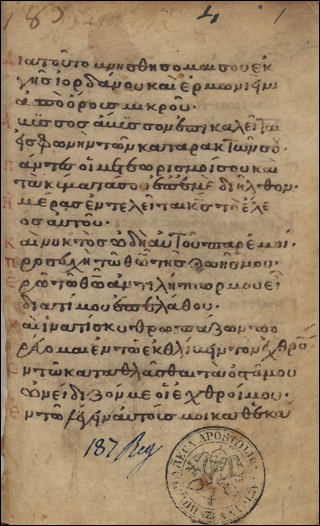 189 4 1
Διατοῦτο μνησθήσομαι σου ἐκ
γῆς ἰορδάνου καὶ ἑρμωνιεὶμ
ἀπὸ ὄρους μικροῦ.
Ἄβυσσος ἄβυσσον ἐπικαλεῖται
εἰς φωνὴν τῶν καταρακτῶν σου
πάντες οἱ μετεωρισμοί σου καὶ
τὰ κύματά σου ἐπ' ἐμὲ διῆλθον.
Ἡμέρας ἐντελεῖται κ̅ς̅ τὸ ἔλε
ος αὐτοῦ.
Καὶ νυκτὸς ὠδὴ αὐτοῦ παρ' ἐμοί.
Προσευχὴ τῶ θ̅ω̅ τῆς ζωῆς μου.
Ἐρῶ τῶ θ̅ω̅ ἀντιλήπτωρ μου εἶ
διατί μου ἐπελάθου.
Καὶ ἱνατί σκυθρωπάζων πο
ρεύομαι ἐν τῶ ἐκθλίβειν τὸν ἐχθρόν
Ἐν τῶ καταθλᾶσθαι τὰ ὀστᾶ μου
ὠνείδιζόν με οἱ ἐχθροί μου.
Ἐν τῶ λέγειν αὐτούς μοι καθ' ἑκά
187 Reg
BIBLIOTHECA APOSTOLICA VATICANA